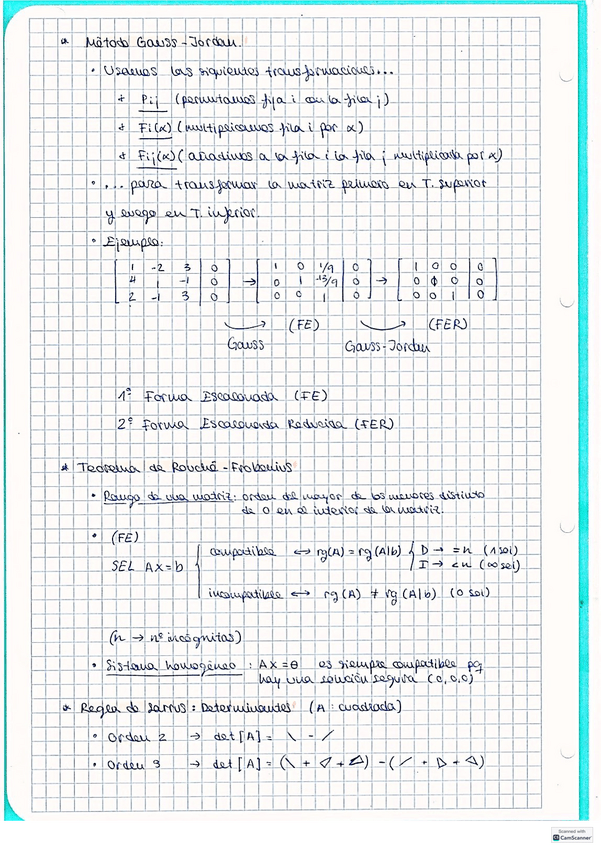 * Método Gauss-Jordan.
• Usamos las siguientes transformaciones...
* Pij (permutamos fija i con la fila j)
* Fi(α) (multiplicamos fila i por α)
* Fij(α) (añadimos a la fila i la fila j multiplicada por α)
• ... para transformar la matriz primero en T. superior
y luego en T. inferior.
• Ejemplo:
[1 -2 3 | 0] → [1 0 1/9 | 0] → [1 0 0 | 0]
[4 1 -1 | 0] [0 1 -13/9 | 0] [0 0 0 | 0]
[2 -1 3 | 0] [0 0 1 | 0] [0 0 1 0]
Gauss (FE) Gauss-Jordan (FER)
1º Forma Escalonada (FE)
2º Forma Escalonada Reducida (FER)
* Teorema de Rouché-Frobenius
• Rango de una matriz: orden del mayor de los menores distinto
de 0 en el interior de la matriz.
• (FE)
SEL Ax=b { compatible ↔ rg(A) = rg(A|b) { D → = n (1 sol)
I → < n (∞ sol)
incompatible ↔ rg(A) ≠ rg(A|b) (0 sol)
(n → nº incógnitas)
• Sistema homogéneo: Ax = θ es siempre compatible pq
hay una solución segura (0,0,0)
* Regla de Sarrus: Determinantes (A: cuadrada)
• Orden 2 → det[A] = \ - /
• Orden 3 → det[A] = (\ + ◁ + △) - (/ + ▷ + ◁)
Scanned with
CamScanner